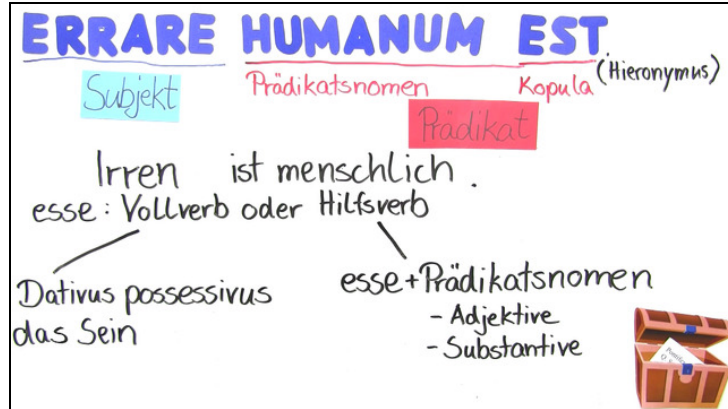 ERRARE HUMANUM EST
(Hieronymus)
Subjekt
Prädikatsnomen
Kopula
Prädikat
Irren ist menschlich.
esse: Vollverb oder Hilfsverb
Dativus possessivus
das Sein
esse + Prädikatsnomen
- Adjektive
- Substantive